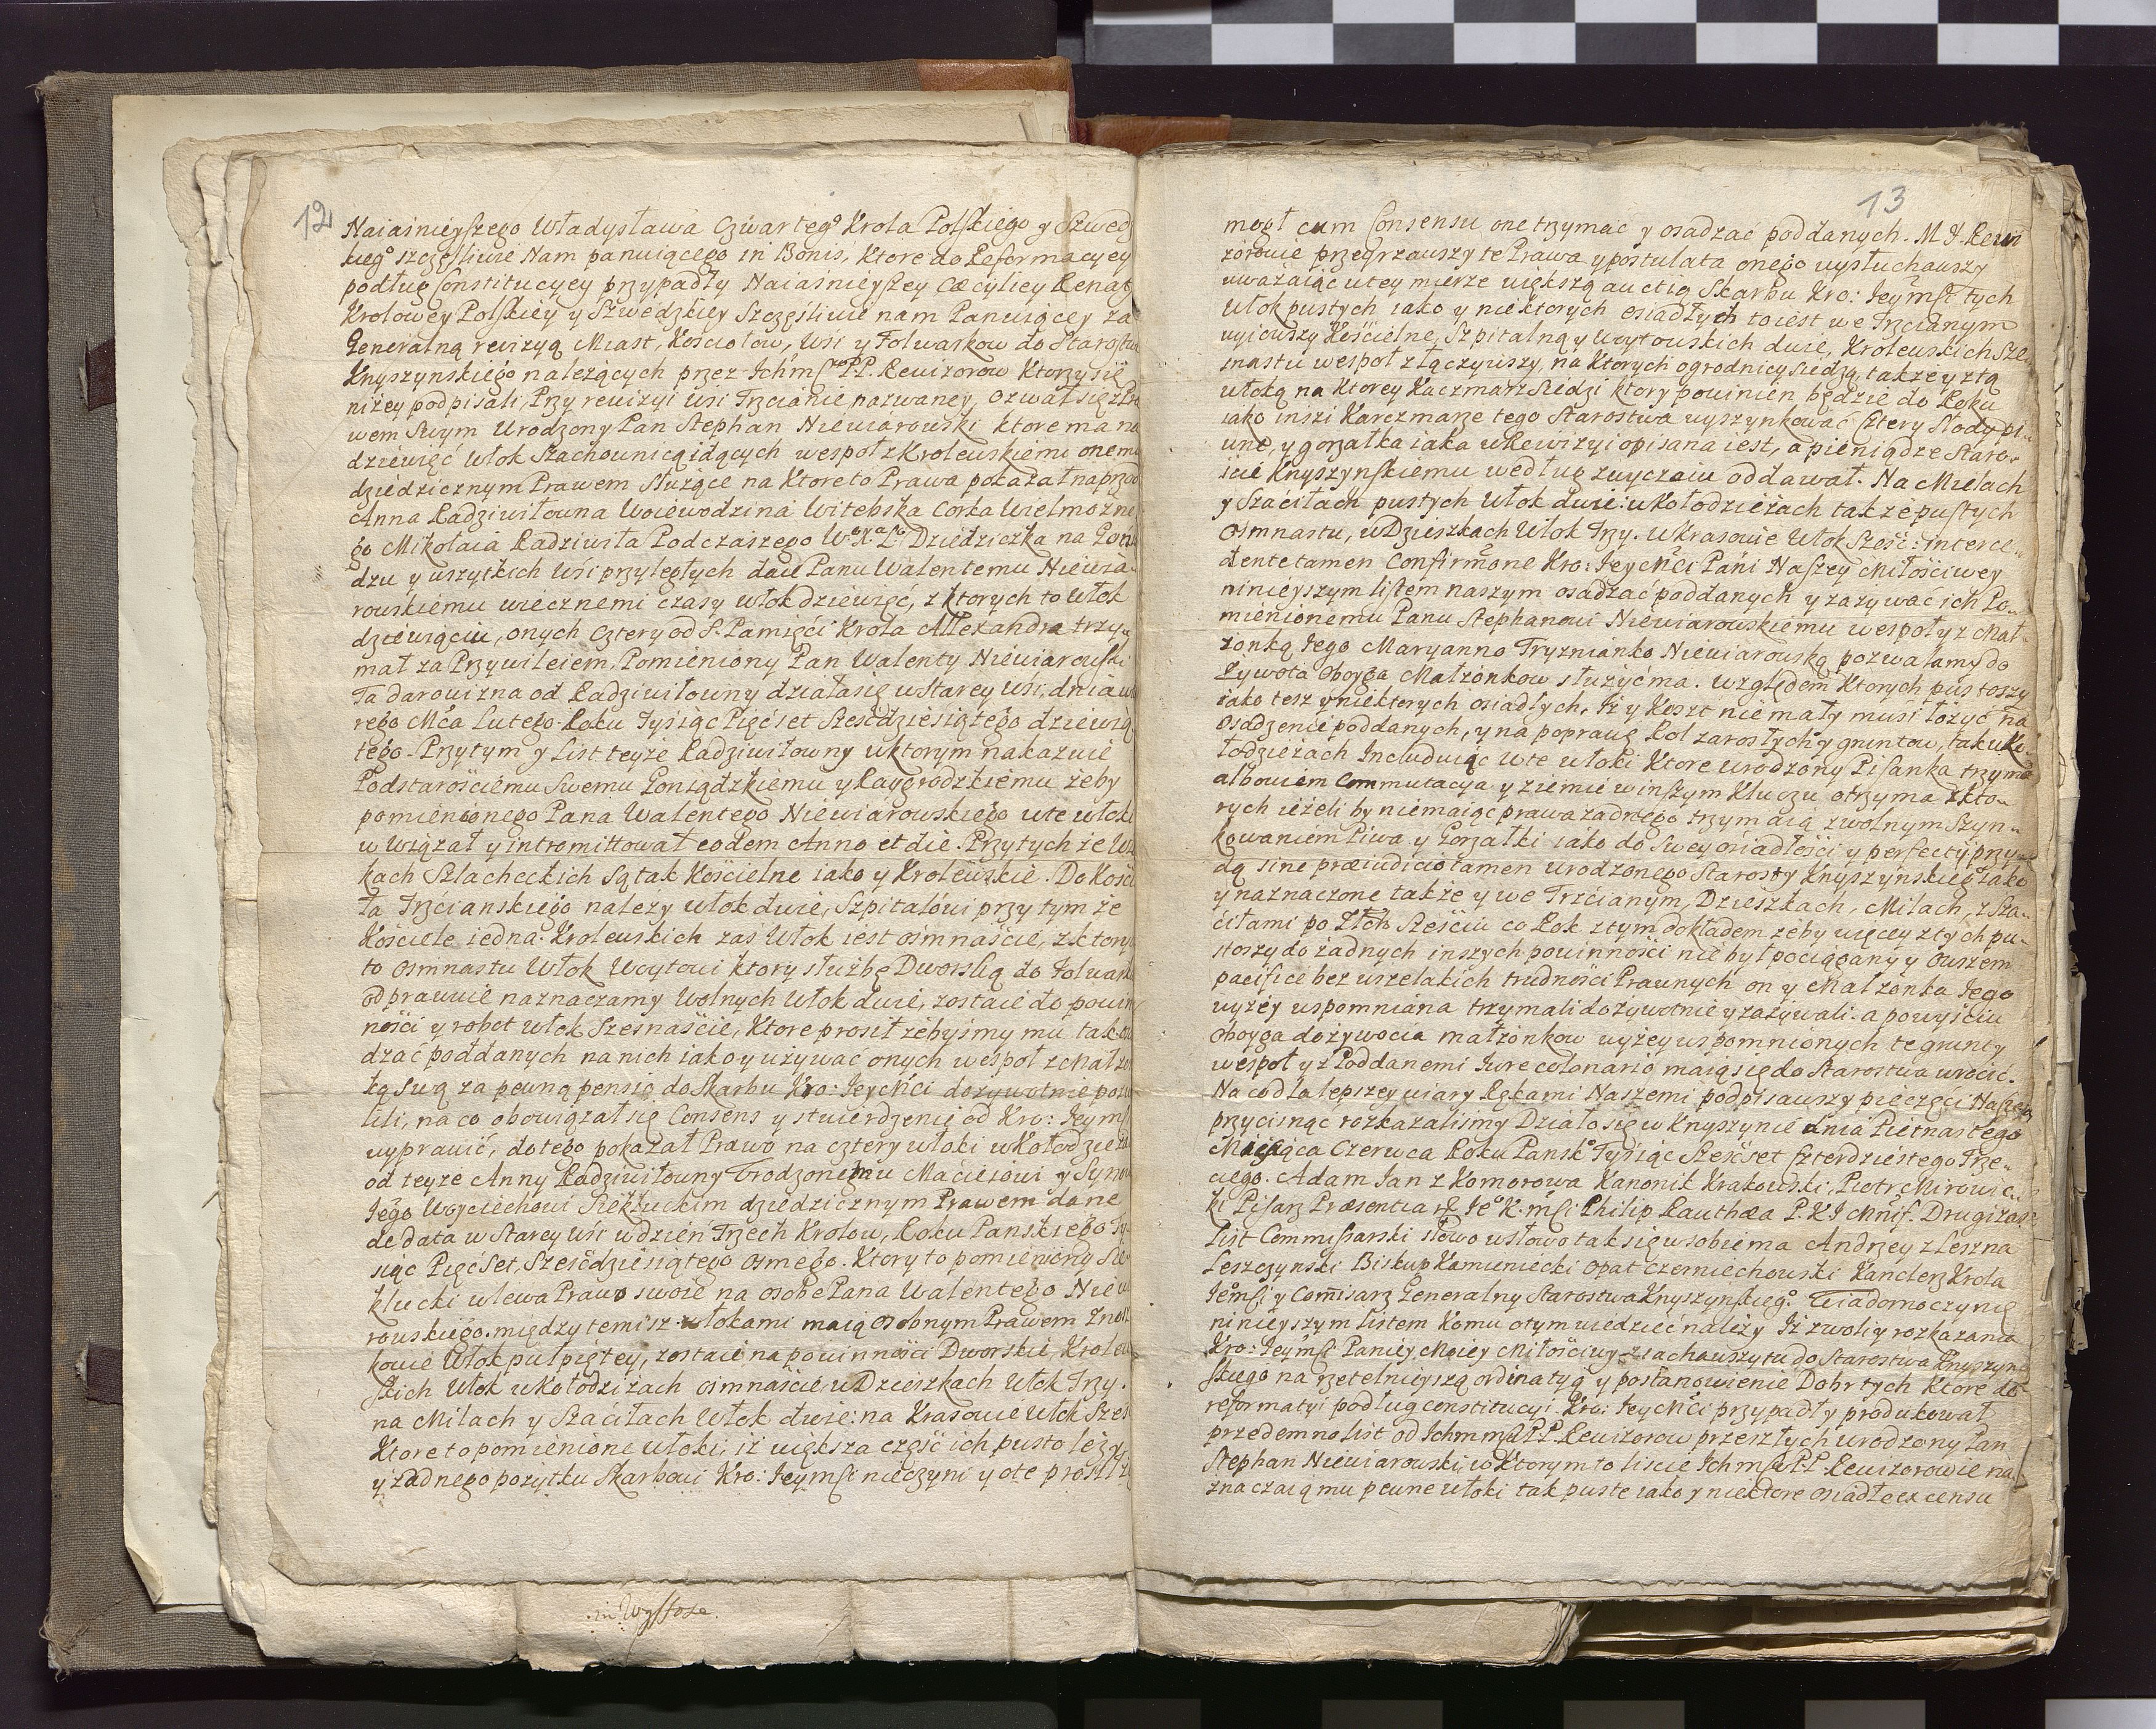 12
Naiaśnieyszego Władysława Czwarteg° Krola Polskiego y Szwedz
kieg° szczęśliwie Nam panuiącego in Bonis, Ktore do Reformacyey
podług Constitucyey przypadły Naiaśnieyszey Cæcyliey Renat
Krolowey Polskiey y Szwedzkiey Szczęśliwie nam Panuiącey za
Generalną rewizyą Miast, Kościołow, Wsi y Folwarkow do Starostw
Knyszynskiego należących przez Ichmść PP. Rewizorow Ktorzy się
niżey podpisali, Przy rewizyi wsi Trzcianie nazwaney, ozwał się z Pra
wem Swym Urodzony Pan Stephan Niewiarowski ktore ma na
dziewięć włok Szachownicą idących wespoł z Krolewskiemi onemu
dziedzicznym Prawem służące na Ktore to Prawa pokazał naprzod
Anna Radziwiłowna Woiewodzina Witebska Corka Wielmożne
go Mikołaia Radziwiła Podczaszego W° X° L° Dziedziczka na Goniąd
dzu y wszytkich wsi przyległych daie Panu Walentemu Niewia-
rowskiemu wiecznemi czasy włok dziewięć, z ktorych to włok
dziewiąciu, onych cztery od S. Pamięci Krola Allexandra trzy-
mał za Przywileiem, Pomieniony Pan Walenty Niewiarowski
Ta darowizna od Radziwiłowny działa się w Starey wsi, dnia w
rego Mca Lutego Roku Tysiąc Pięćset Sześdziesiątego dziewią
tego. Przytym y List teyże Radziwiłowny w ktorym nakazuie
Podstarościemu Swemu Goniądzkiemu y Raygrodzkiemu żeby
pomienionego Pana Walentego Niewiarowskiego w te włoki
w wiązał y intromittował eodem Anno et die. Przy tych że Wło
kach Szlacheckich Są tak Kościelne iako y Krolewskie. Do Kości
ła Trzcianskiego należy włok dwie, Szpitalowi przy tym że
Kościele iedna. Krolewskich zaś Włok iest ośmnaście, z ktory
to osmnastu Włok Woytowi ktory służbę Dworską do Folwark
odprawuie naznaczamy wolnych włok dwie, zostaie do powin
ności y robot włok Szesnaście, Ktore prosił żebyśmy mu tak osa
dzać poddanych na nich iako y używać onych wespoł z Małżo
ką Swą za pewną pensią do Skarbu Kro: Jeymci dożywotnie pozwo
lili, na co obowiązał się Consens y stwierdzenie od Kro: Jeymś
wyprawić, do tego pokazał Prawo na cztery włoki w Kołodzieża
od teyże Anny Radziwiłowny Urodzonemu Maciejowi y Synow
Jego Woyciechowi Siekluckim dziedzicznym Prawem dane
de data w Starey wsi w dzień Trzech Krolow, Roku Panskiego Ty
siąc Pięć Set, Sześćdziesiątego osmego. Ktory to pomieniony Sie
klucki wlewa Prawo swoie na osobę Pana Walentego Niewi
rowskiego. między temisz włokami maią osobnym Prawem Znos
kowie Włok puł piętey, zostaie na powinności Dworskie, Krolew
skich Włok w Kołodziżach osmnascie w Dzieszkach Włok Trzy.
na Milach y Szaciłach Włok dwie: na Krasowie Włok Sześć
Ktore to pomienione włoki, iż większa część ich pusto leży,
y żadnego pożytku Skarbowi Kro: Jeymść nieczyni y o te prosił ż
in Wysssose.
13
mogł cum Consensu one trzymac y osadzać poddanych. M J. Rewi
zorowie przeyrzawszy te Prawa y postulata onego wysłuchawszy
uważaiąc w tey mierze większą auctią Skarbu Kro: Jeymść tych
Włok pustych iako y niektorych osiadłych to iest we Trzcianym
wyiowszy Kościelne, Szpitalną y Woytowskich dwie, Krolewskich Sze
snastu wespoł złączywszy, na Ktorych ogrodnicy siedzą, także y z tą
włoką na Ktorey Kaczmarz Siedzi ktory powinien będzie do Roku
iako inszi Karczmarze tego Starostwa wyszynkować Cztery Słody pi-
wne, y gorzałka iaka w Rewizyi opisana iest, a pieniądze Staro-
ście Knyszynskiemu według zwyczaiu oddawał. Na Milach
y Szaciłach pustych Włok dwie: w Kołodzieżach także pustych
Osmnastu, w Dzieszkach Włok Trzy. w Krasowie Włok Sześć: interce-
dente tamen Confirmõne Kro: Jeymci Pani Naszey Miłościwey
ninieyszym listem naszym osadzać poddanych y zażywać ich Po-
mienionemu Panu Stephanowi Niewiarowskiemu wespoły z Mał-
żonką Jego Maryanno Tryznianko Niewiarowską pozwalamy do
Żywota oboyga Małżonkow służyć ma. względem Ktorych pustoszy
iako tesz y niekterych osiadłych, Iż y Koszt nie mały musi łożyć na
osadzenie poddanych, y na poprawę Rol zarosłych y gruntow, tak w Ko-
łodzieżach Includuiąc w te włoki Ktore urodzony Pisanka trzyma
albowiem Commutacya y ziemie w inszym Kluczu otrzyma z kto-
rych ieżeli by niemaiąc prawa żadnego trzymaią z wolnym Szyn-
kowaniem Piwa y Gorzałki iako do Swey osiadłości y perfecty przy
dą sine præiudicio tamen urodzonego Starosty Knyszynskieg° iako
y naznaczone także y we Trzcianym, Dzieszkach, Milach, z Sza-
ciłami po Złch Sześciu co Rok z tym dokładem żeby więcey z tych pu-
stoszy do żadnych inszych powinności nie był pociągany y owszem
pacifice bez wszelakich trudności Prawnych on y Małżonka Jego
wyżey wspomniana trzymali dożywotnie y zażywali. a po wyiściu
oboyga dożywocia małżonkow wyżey wspomnionych te grunty
wespoł y z Poddanemi Jure colonario maią się do Starostwa wrocić.
Na co dla lepszey wiary Rękami Naszemi podpisawszy pieczęci Nasze
przycisnąc rozkazalismy Działo się w Knyszynie dnia Pietnastego
Miesiąca Czerwca Roku Pansk° Tysiąc Sześćset Czterdziestego Trze-
ciego. Adam Jan z Komorowa Kanonik Krakowski, Piotr Mirowic-
ki Pisarz Præsentia Je° K. mści Philip Kauthæa P. K J Mnis. Drugi zas
List Commissarski słowo w słowo tak się w sobie ma Andrzey z Leszna
Leszczynski Biskup Kamieniecki Opat Czerniechowski Kanclerz Krola
Je°mści y Comisarz Generalny Starostwa Knyszynskieg°. Wiadomo czynię
ninieyszym listem Komu o tym wiedzieć należy Iż z woli y rozkazania
Kro: Jeymść Paniey Moiey Miłościwy ziachawszy tu do Starostwa Knyszyn
skiego na rzetelnieyszą ordinatyą y postanowienie Dobr tych Ktore do
reformatyi podług constitucyi Kro: Jeymci przypadły produkował
przedemno list od Ichmm PP. Rewizorow przeszłych urodzony Pan
Stephan Niewiarowski, w Ktorym to liscie Ichmść PP. Rewizorowie na
znaczaią mu pewne włoki tak puste iako y niektore osiadłe ex censu